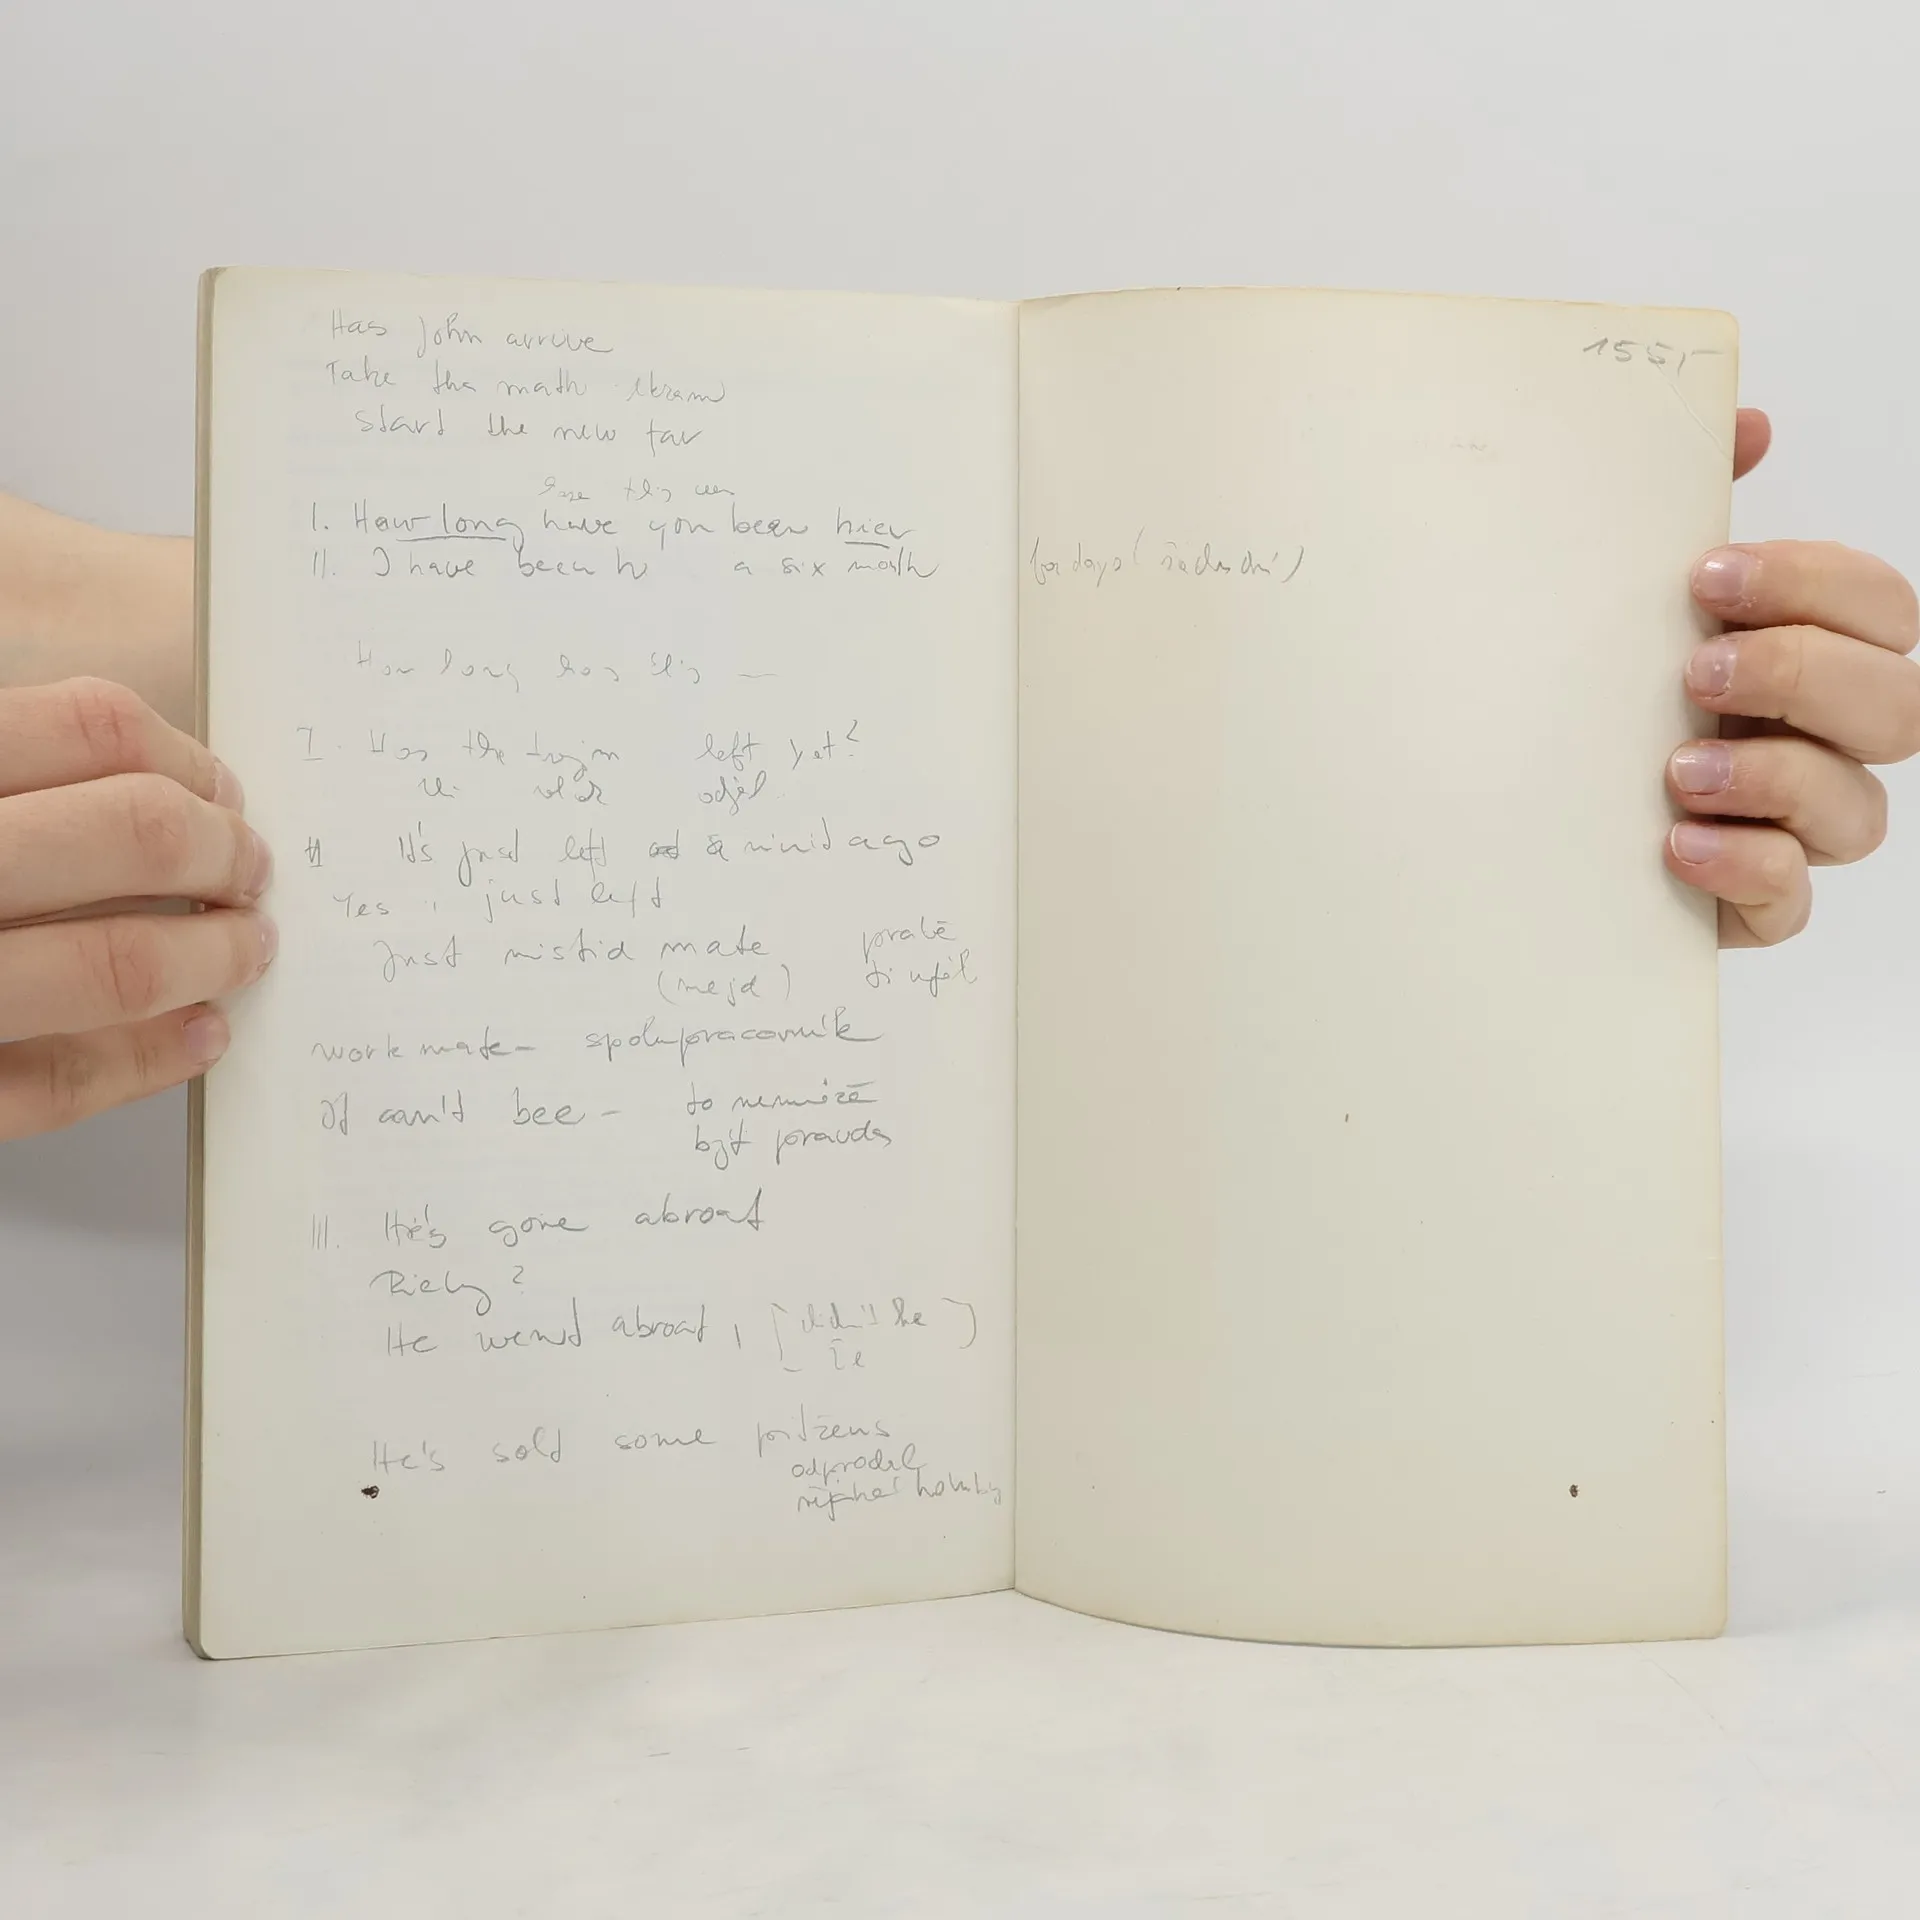 Has John arrive
Take the math
start the new
I. How long have you been hier
II. I have been h a six month
How long has this —
I. Has the train left yet?
odjel
II It's just left a minit ago
Yes, just left
Just mistid mate
(mejd)
pravě
ti ujel
work mate – spolupracovník
It can't bee – to nemůže
být pravda
III. He's gone abroat
He wend abroat, [didn't he]
že
He's sold some
odprodal
nějaké
for days
155,-